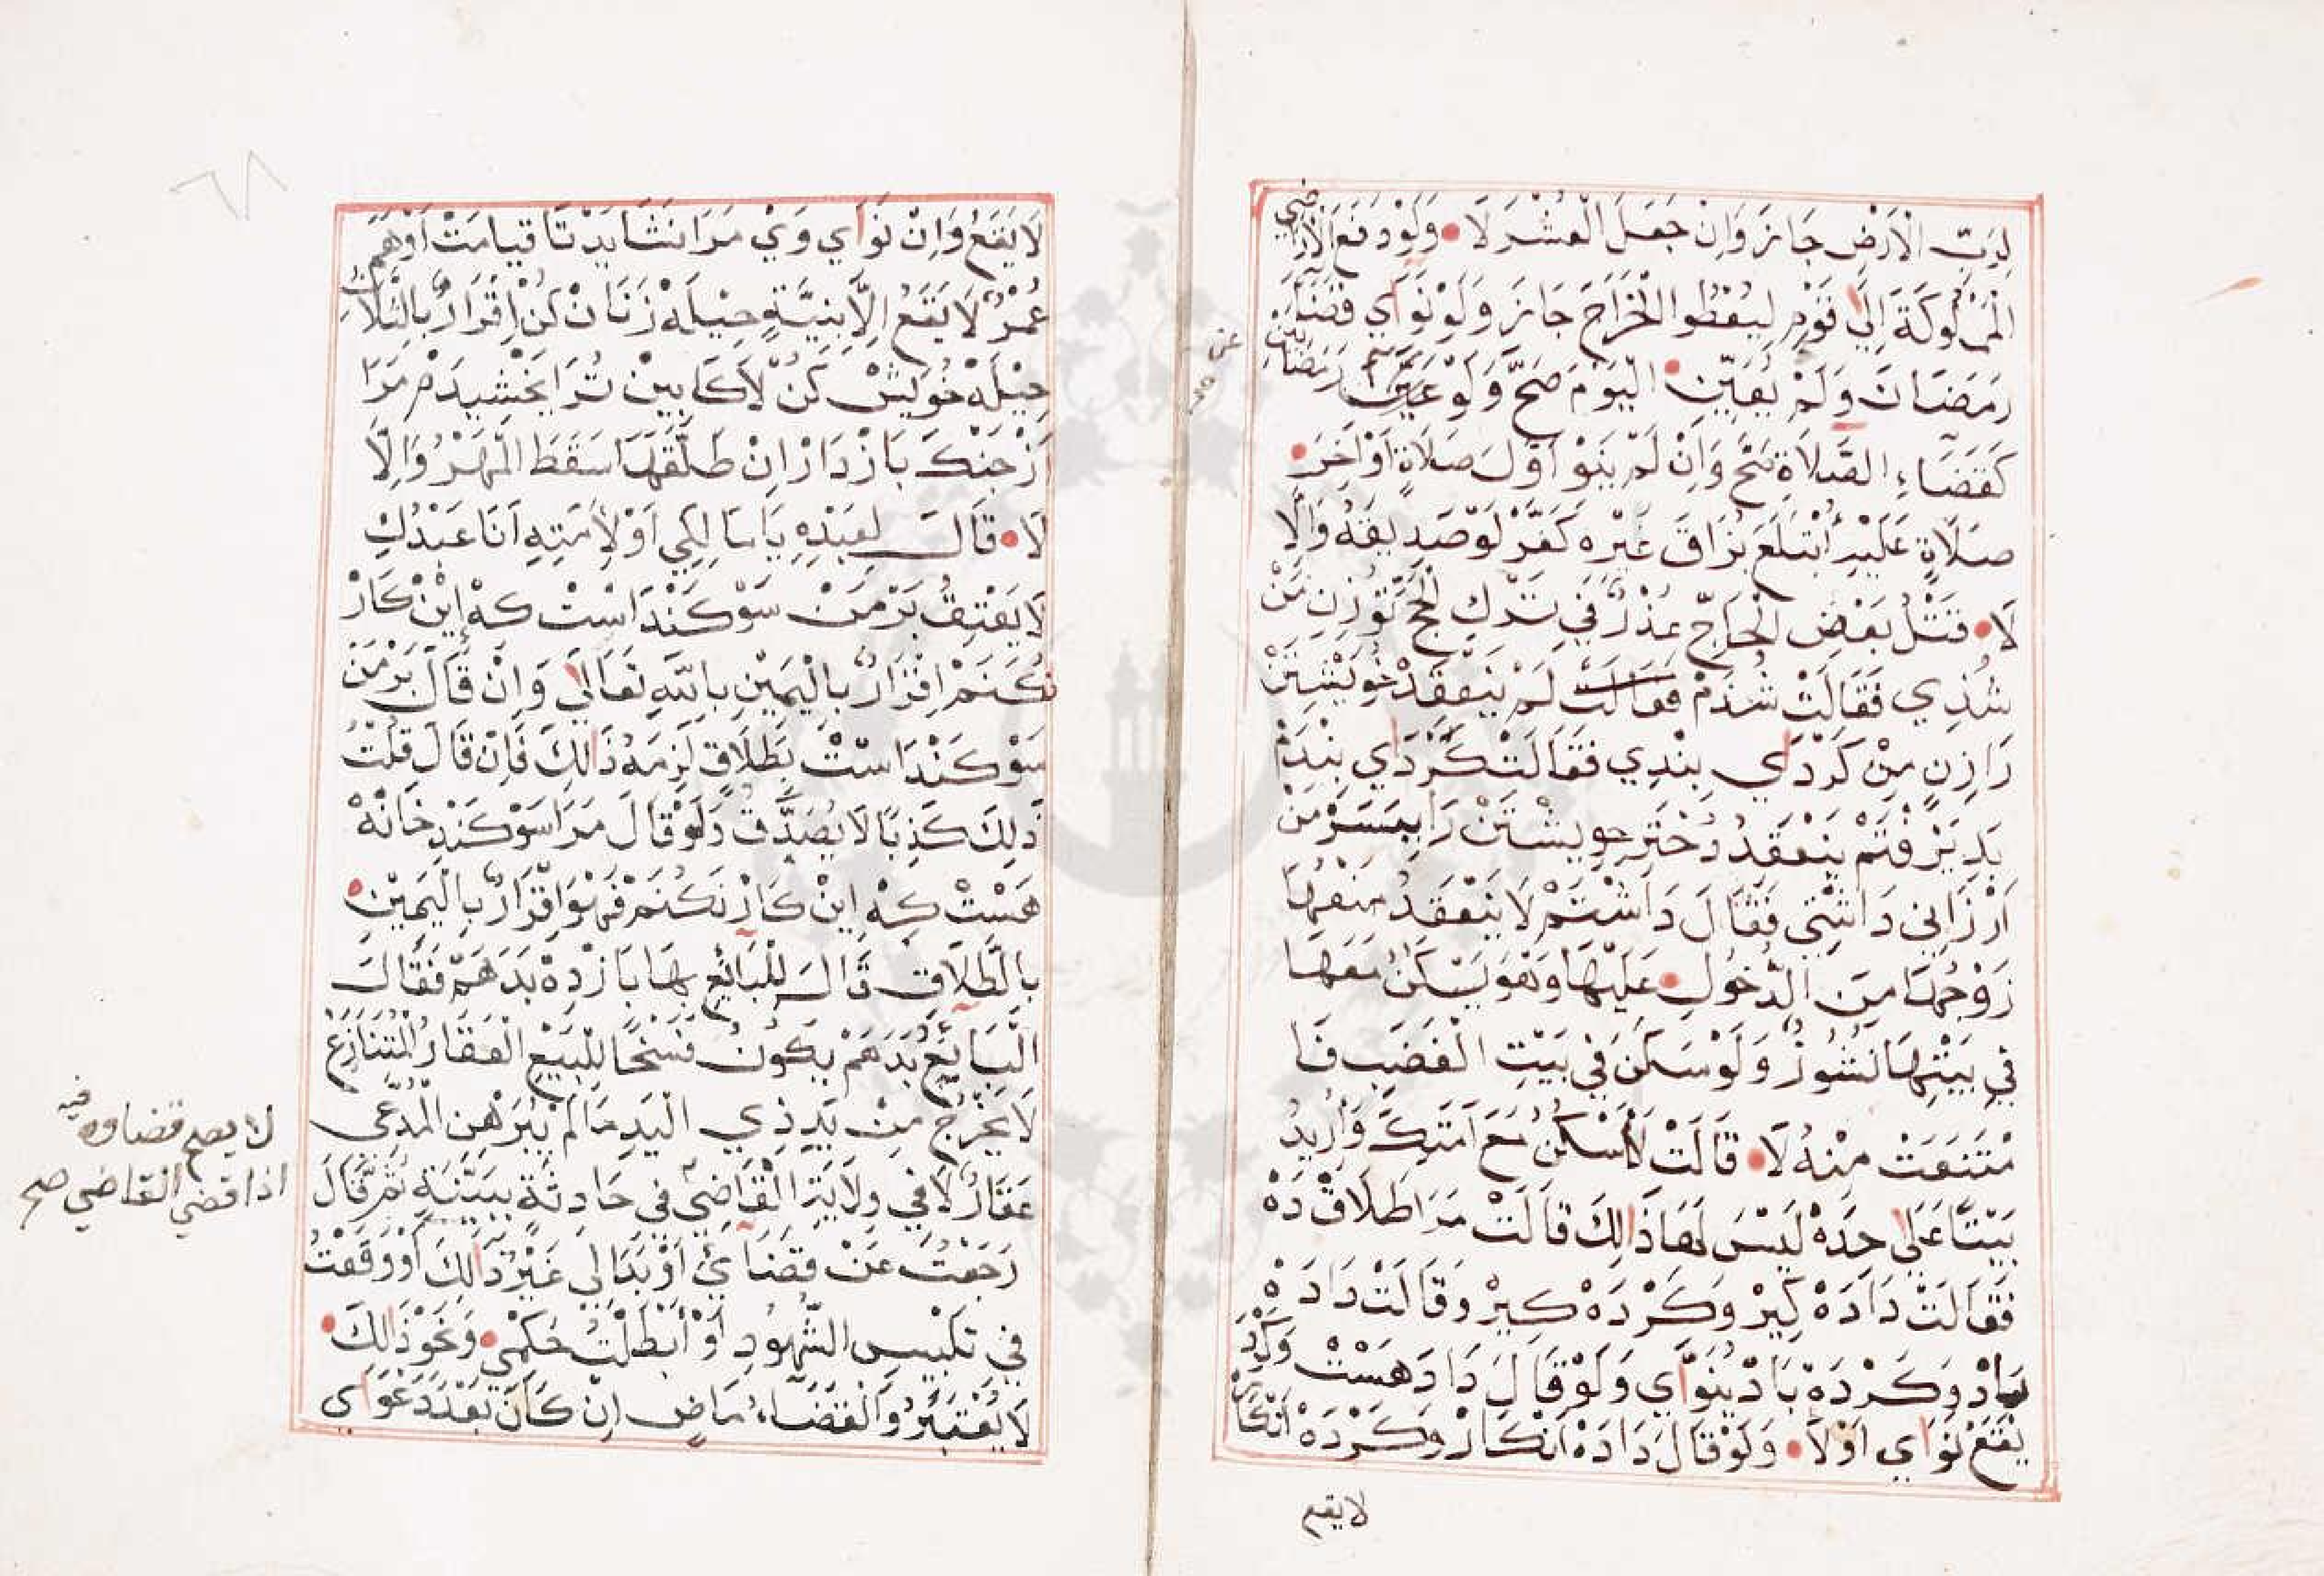 لِرَبِّ الْاَرْضِ جَازَ وَاِنْ جَعَلَ الْعُشْرَ لَا وَلَوْ دَفَعَ الْاَرَاضِي
الْمَمْلُوكَةَ اِلَى قَوْمٍ لِيُعْطُوا الْخَرَاجَ جَازَ وَلَوْ نَوَاي قَضَاءَ
رَمَضَانَ وَلَمْ يُعَيِّنِ الْيَوْمَ صَحَّ وَلَوْ عَنْ رَمَضَانَيْنِ
كَقَضَاءِ الصَّلَاةِ صَحَّ وَاِنْ لَمْ يَنْوِ اَوَّلَ صَلَاةٍ اَوْ اٰخِرَ
صَلَاةٍ عَلَيْهِ اُبْتَلَعَ بُزَاقَ غَيْرِه كَفَّرَ لَوْ صَدِيقَهُ وَاِلَّا
لَا قَتْلُ بَعْضِ الْحَاجِّ عُذْرٌ فِي تَرْكِ الْحَجِّ تُوزِنِ مَنْ
شُدِي فَقَالَتْ شُدَمْ لَمْ يَنْعَقِدْ خُويْشِتَنْ
رَازِنِ مِنْ كَرْدَاي بِنْدِي فَقَالَتْ كَرْدَاي بِنْدَمْ
بَدِيَرُفْتَمْ يَنْعَقِدُ دُخْتَرِ خِويشْتَنْ رَا بِپِسَرِ مِنْ
اَرْزَانِي دَاشْتِي فَقَالَ دَاشْتَمْ لَا يَنْعَقِدُ مَنْعُهَا
زَوْجَهَا مِنَ الدُّخُولِ عَلَيْهَا وَهُوَ يَسْكُنُ مَعَهَا
فِي بَيْتِهَا نُشُوزٌ وَلَوْ سَكَنَ فِي بَيْتِ الْغَصْبِ فَا
مْتَنَعَتْ مِنْهُ لَا قَالَتْ لَا اَسْكُنُ مَعَ اَمَتِكَ وَاُرِيدُ
بَيْتًا عَلَى حِدَةٍ لَيْسَ لَهَا ذَالِكَ قَالَتْ مَرَا طَلَاقْ دَهْ
فَقَالَتْ دَادَهْ كِيرْ وَكَرْدَهْ كِيرْ وَقَالَتْ دَادَهْ
بَادْ وَكَرْدَهْ بَادْ يَنْوَاي وَلَوْ قَالَ دَادَ هَسْتْ وَكَرْدَ
يَقَعُ نَوَاي اَوْ لَا وَلَوْ قَالَ دَادَهْ اَنْكَارْ وَكَرْدَهْ اَنْكَارْ
لا يقع
لَا يَقَعُ وَاِنْ نَوَاي وَيْ مَرَا نَشَايَدْ تَا قِيَامَتْ اَوْ هَمَهْ
عُمْرْ لَا يَقَعُ اِلَّا بِنِيَّةٍ حِيلَهْ زَنَانْ كُنْ اِقْرَارٌ بِالثَّلَاثِ
حِيْلَهْ خُويشْ كُنْ لَا كَابِينْ تُرَا بَخْشِيدَمْ مَرَا
اَزْ جَنْكَ بَازْدَارْ اِنْ طَلَّقَهَا سَقَطَ الْمَهْرُ وَاِلَّا
لَا قَالَ لِعَبْدِهِ يَا مَالِكِي اَوْ لِاَمَتِهِ اَنَا عَبْدُكِ
لَا يَعْتِقُ بَرْمَنْ سَوْكَنْدَاسْتْ كِهْ اِيْنْ كَارْ
نَكُنَمْ اِقْرَارٌ بِالْيَمِيْنِ بِاللّٰهِ تَعَالَى وَاِنْ قَالَ بَرْمَنْ
سَوْكَنْدَاسْتْ بِطَلَاقٍ لَزِمَهُ ذَالِكَ فَاِنْ قَالَ قُلْتُ
ذٰلِكَ كَذِبًا لَا يُصَدَّقُ وَلَوْ قَالَ مَرَا سَوْكَنْدِ خَانَهْ
هَسْتْ كِهْ اِينْ كَارْ نَكُنَمْ فَهُوَ اِقْرَارٌ بِالْيَمِيْنِ
بِالطَّلَاقِ قَالَ لِلْبَائِعِ بَهَا بَازْ دِهْ بَدَهَمْ فَقَالَ
الْبَائِعُ بَدَهَمْ يَكُونُ فَسْخًا لِلْبَيْعِ الْعَقَارُ الْمُتَنَازَعُ
لَا يَخْرُجُ مِنْ يَدِ ذِي الْيَدِ مَا لَمْ يُبَرْهِنِ الْمُدَّعِي
عَقَارٌ لَا فِي وِلَايَةِ الْقَاضِي فِي حَادِثَةٍ بِبَيِّنَةٍ ثُمَّ قَالَ
رَجَعْتُ عَنْ قَضَائِي اَوْ بَدَا لِي غَيْرُ ذَالِكَ اَوْ وَقَعْتُ
فِي تَلْبِيسِ الشُّهُودِ اَوْ اَبْطَلْتُ حُكْمِي وَنَحْوَ ذَالِكَ
لَا يُعْتَبَرُ وَالْقَضَاءُ مَاضٍ اِنْ كَانَ بَعْدَ دَعْوَاي
لا يصح قضاوه فيه
اذا قضى القاضي صح